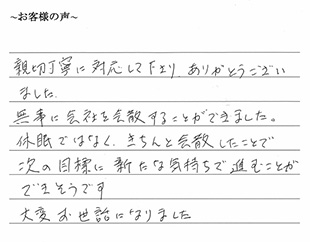 ~お客様の声~
親切丁寧に対応して下さり、ありがとうござい
ました。
無事に会社を会散することができました。
休眠ではなく、きちんと会散したことで
次の目標に新たな気持ちで進むことが
できそうです
大変お世話になりました